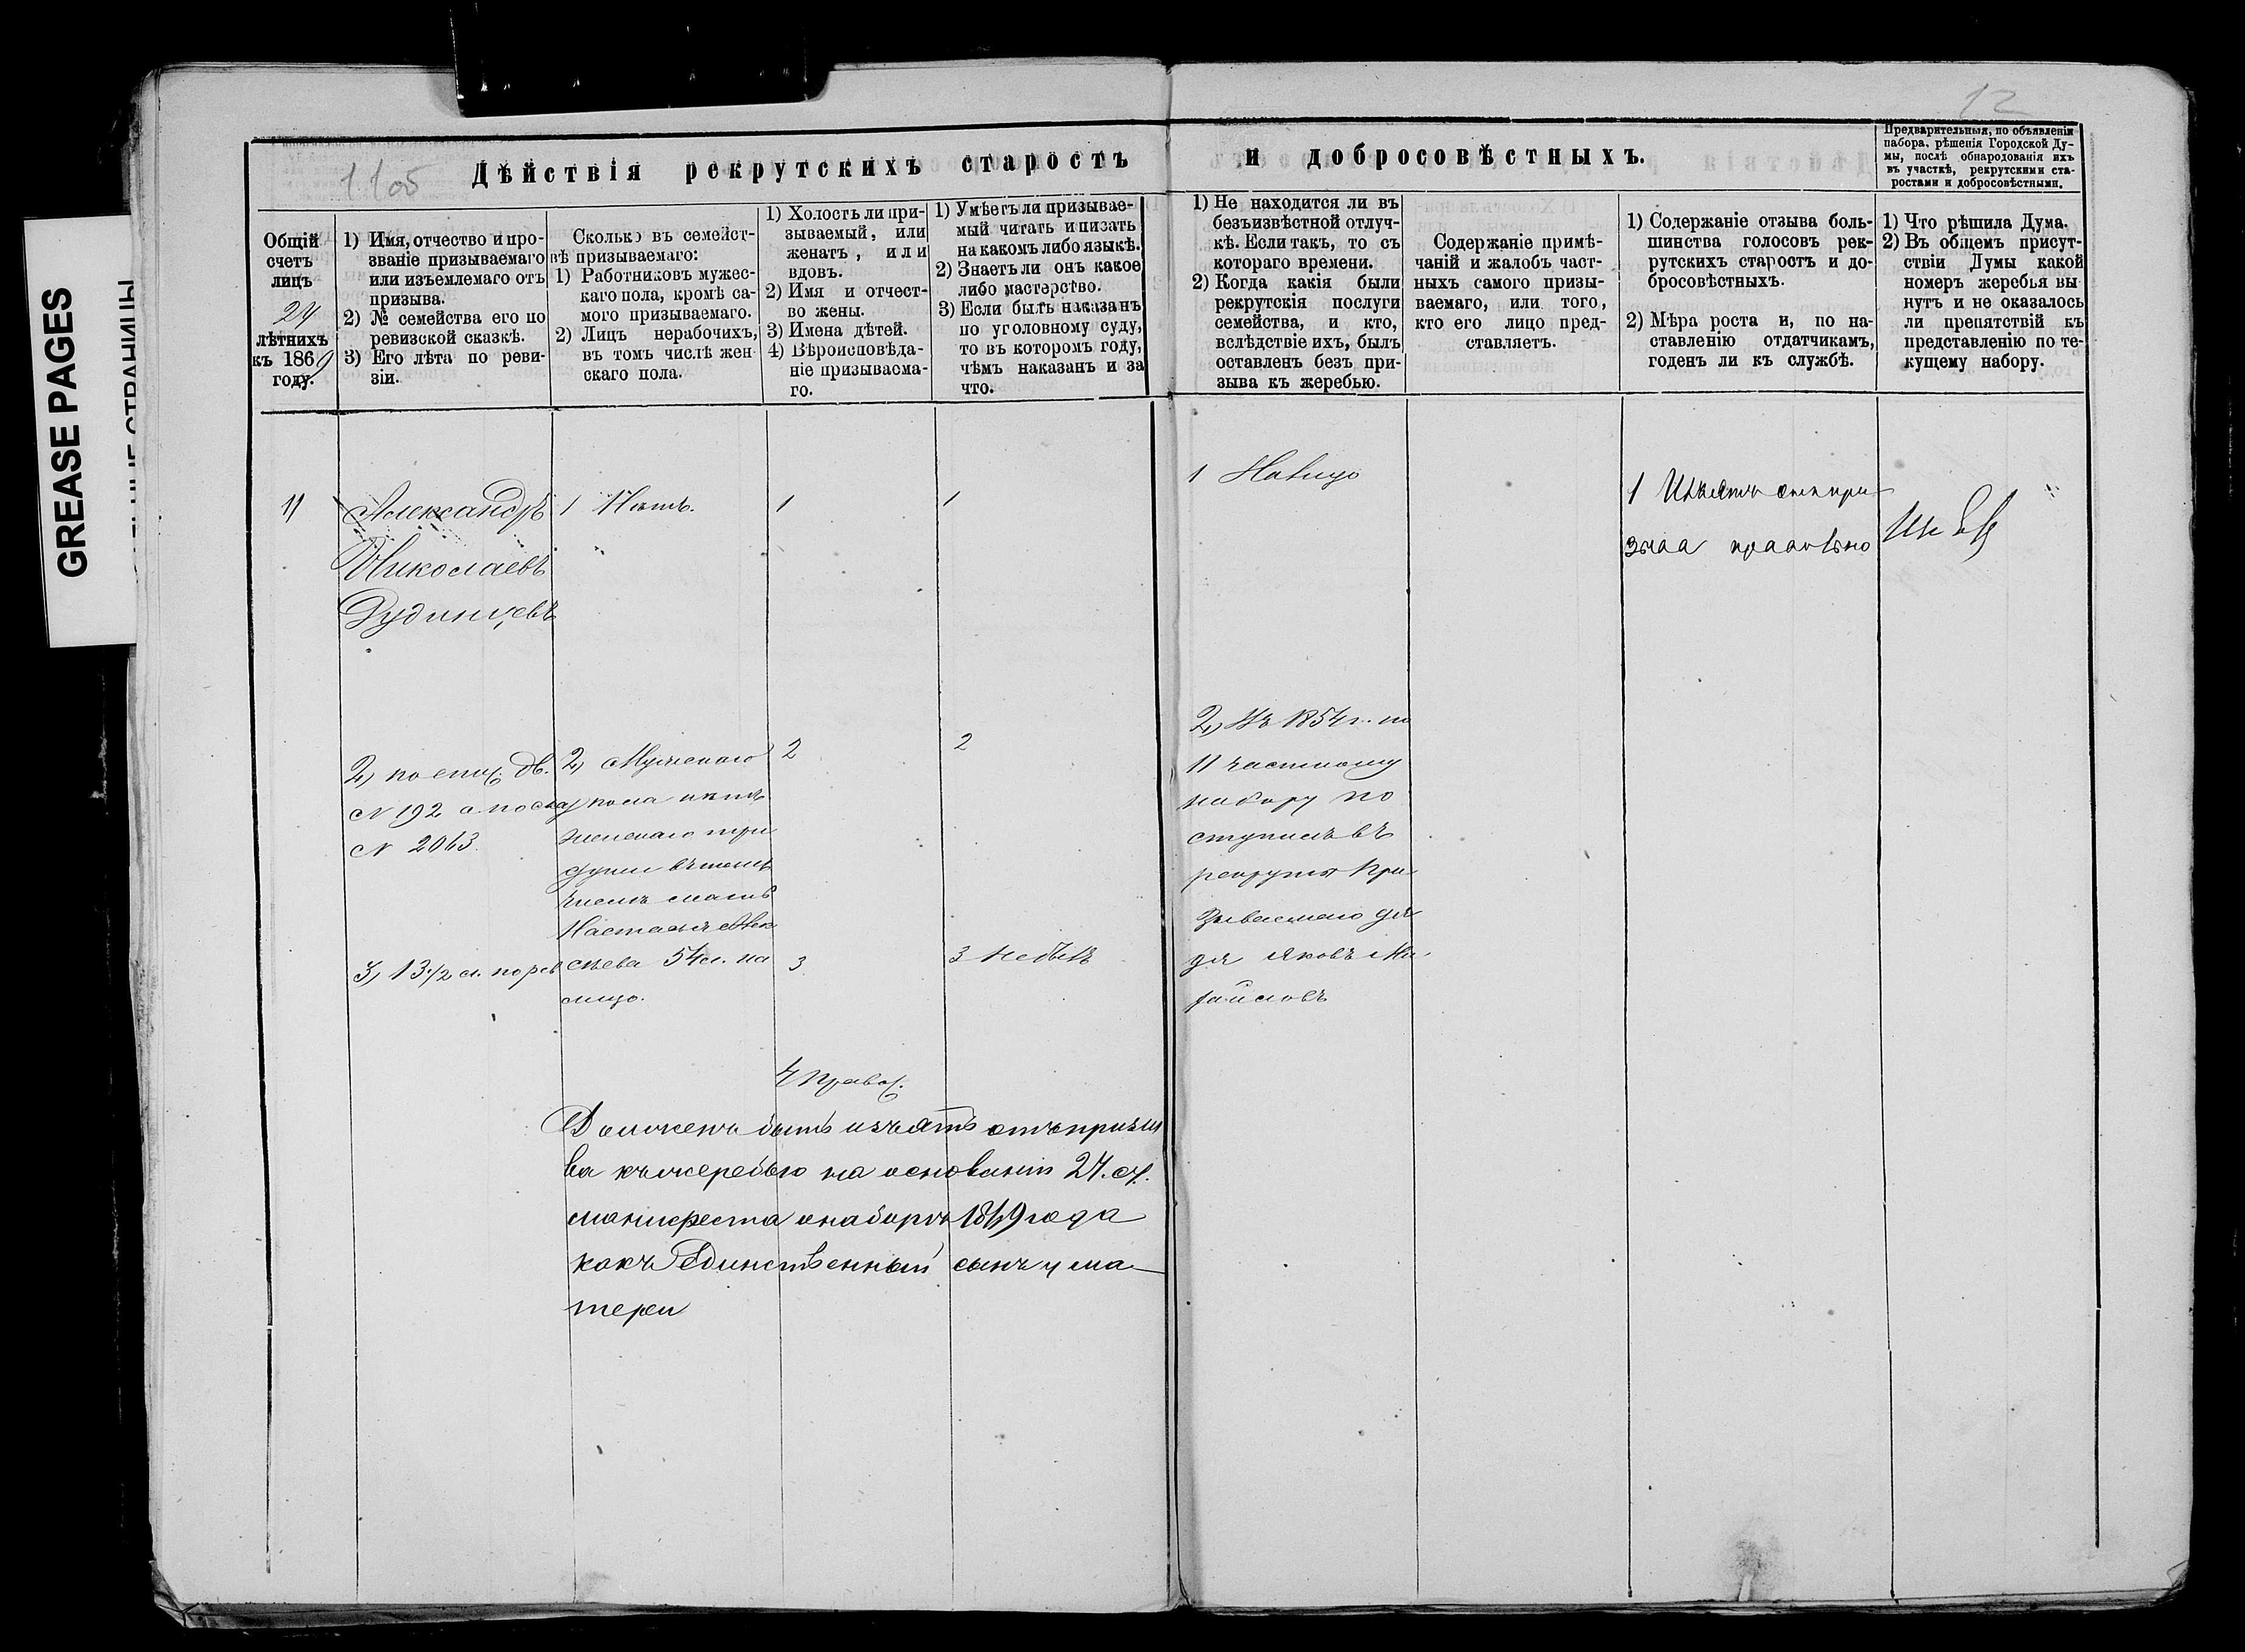 GREASE PAGES
12
1105
Дѣйствія рекрутскихъ старостъ
и добросовѣстныхъ.
Предварительныя, по объявленіи
набора, рѣшенія Городской Ду-
мы, послѣ обнародованія ихъ
въ участкѣ, рекрутскими ста-
ростами и добросовѣстными.
Общій
счетъ
лицъ
24
лѣтнихъ
къ 1869
году.
1) Имя, отчество и про-
званіе призываемаго
или изъемлемаго отъ
призыва.
2) № семейства его по
ревизской сказкѣ.
3) Его лѣта по реви-
зіи.
Сколько въ семейст-
вѣ призываемаго:
1) Работниковъ мужес-
каго пола, кромѣ са-
мого призываемаго.
2) Лицъ нерабочихъ,
въ томъ числѣ жен-
скаго пола.
1) Холостъ ли при-
зываемый, или
женатъ, или
вдовъ.
2) Имя и отчест-
во жены.
3) Имена дѣтей.
4) Вѣроисповѣда-
ніе призываема-
го.
1) Умѣетъ ли призывае-
мый читать и писать
на какомъ либо языкѣ.
2) Знаетъ ли онъ какое
либо мастерство.
3) Если былъ наказанъ
по уголовному суду,
то въ которомъ году,
чѣмъ наказанъ и за
что.
1) Не находится ли въ
безъизвѣстной отлуч-
кѣ. Если такъ, то съ
котораго времени.
2) Когда какія были
рекрутскія послуги
семейства, и кто,
вслѣдствіе ихъ, былъ
оставленъ безъ при-
зыва къ жеребью.
Содержаніе примѣ-
чаній и жалобъ част-
ныхъ самого призы-
ваемаго, или того,
кто его лицо пред-
ставляетъ.
1) Содержаніе отзыва боль-
шинства голосовъ рек-
рутскихъ старостъ и до-
бросовѣстныхъ.
2) Мѣра роста и, по на-
ставленію отдатчикамъ,
годенъ ли къ службѣ.
1) Что рѣшила Дума.
2) Въ общемъ присут-
ствіи Думы какой
номеръ жеребья вы
нутъ и не оказалось
ли препятствій къ
представленію по те-
кущему набору.
11
Александръ
Николаевъ
Рудинцевъ
2, по спис. дв.
№ 192 а по сказ
№ 2063
3, 13 1/2 л. по рев
1 Нѣтъ.
2, Мужескаго
пола нѣтъ
женскаго три
души въ томъ
числѣ мать
Настасья Алек
сѣева 54 л. на
лицо.
1
2
3
4 Правос.
1
2
3 Не былъ
Долженъ быть изъятъ отъ призы
ва къ жеребью на основаніи 24. ст.
манифеста о наборѣ 1869 года
какъ Единственный сынъ у ма-
тери
1 Налицо
2, Въ 1854 г. по
11 частному
набору по
ступилъ въ
рекруты При
зываемаго дя
дя Яковъ Ми
хайловъ
1 Изъятъ отъ при-
зыва правильно